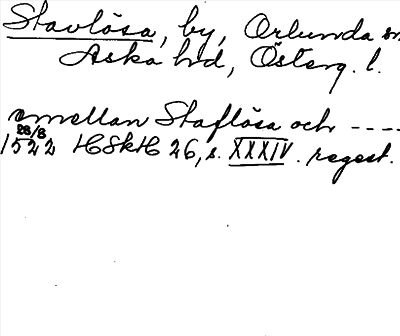 Stavlösa, by, Orlunda sn
Aska hd, Österg. l.
emellan Staflösa och ----
28/8
1522 HSkH 26, s. XXXIV. regest.